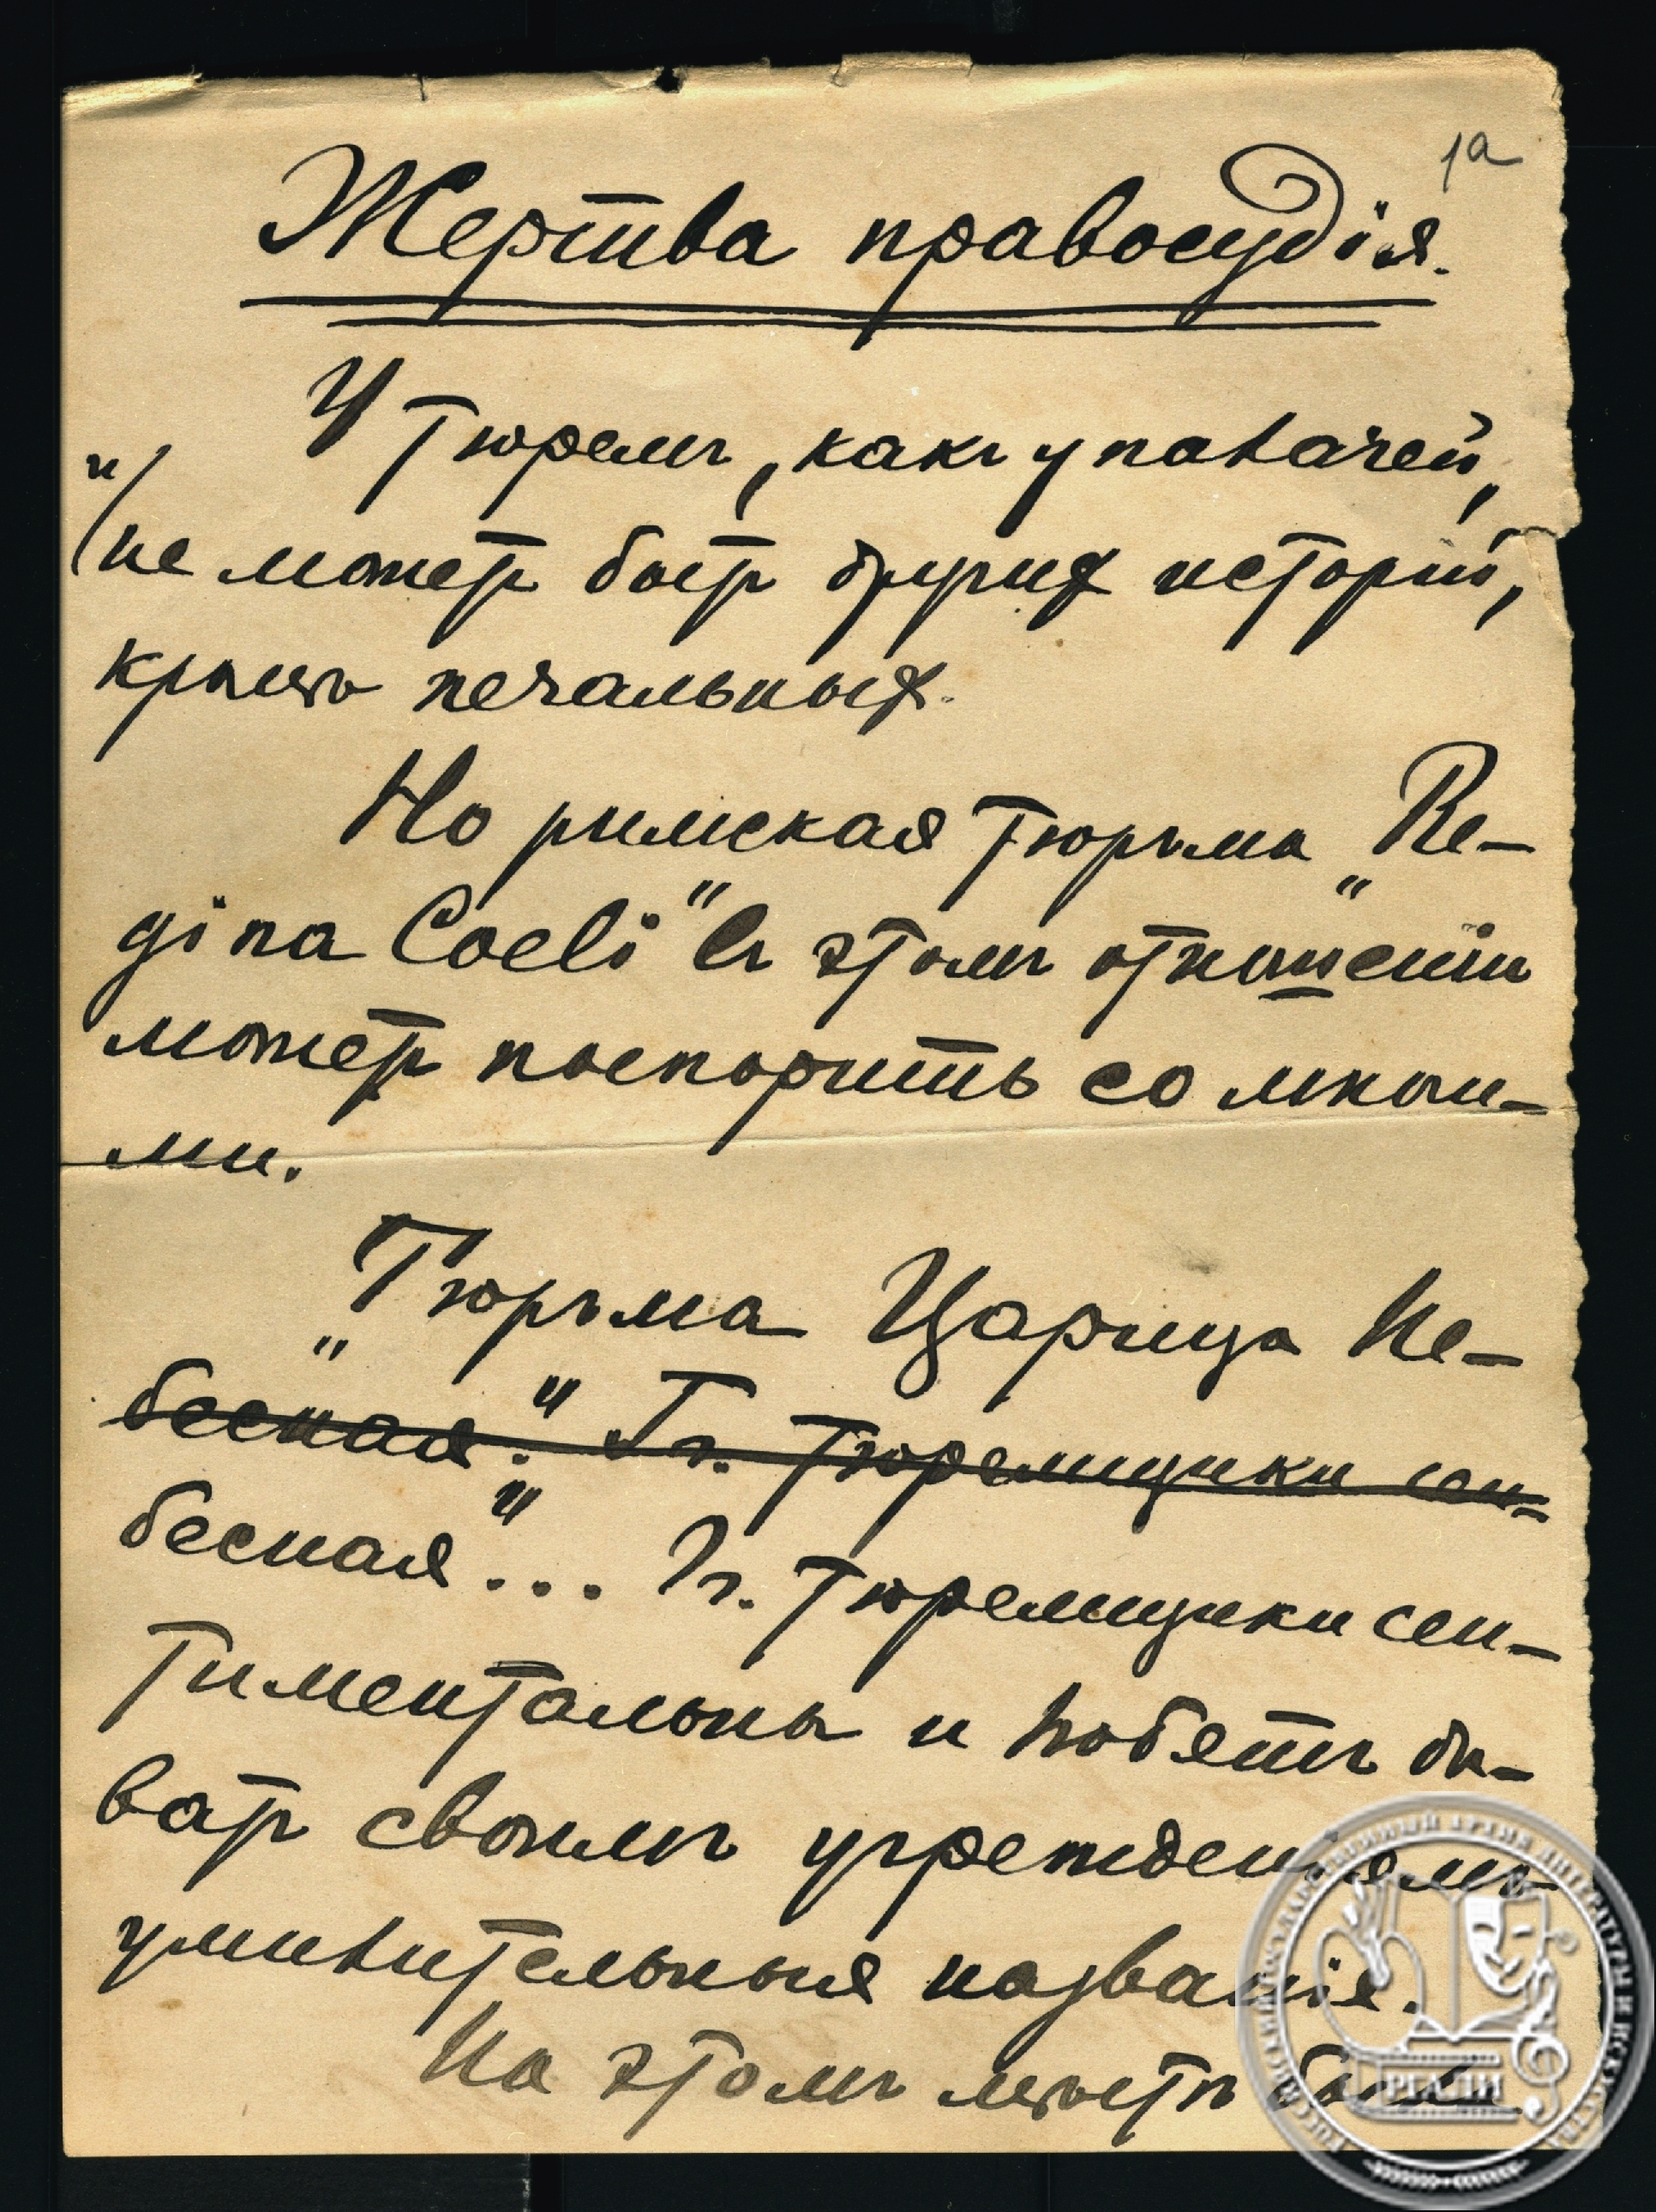 1а
Жертва правосудія.
У тюремъ, какъ у палачей,
и
не можетъ быть другихъ исторій,
кромѣ печальныхъ.
Но римская тюрьма „Re-
gina Coeli" въ этомъ отношеніи
можетъ поспорить со многи-
ми.
„Тюрьма Царица Не-
бесная". Гг. тюремщики сен-
бесная"... Гг. тюремщики сен-
тиментальны и любятъ да-
вать своимъ учрежденіямъ
умилительныя названія.
На этомъ мѣстѣ былъ
РГАЛИ